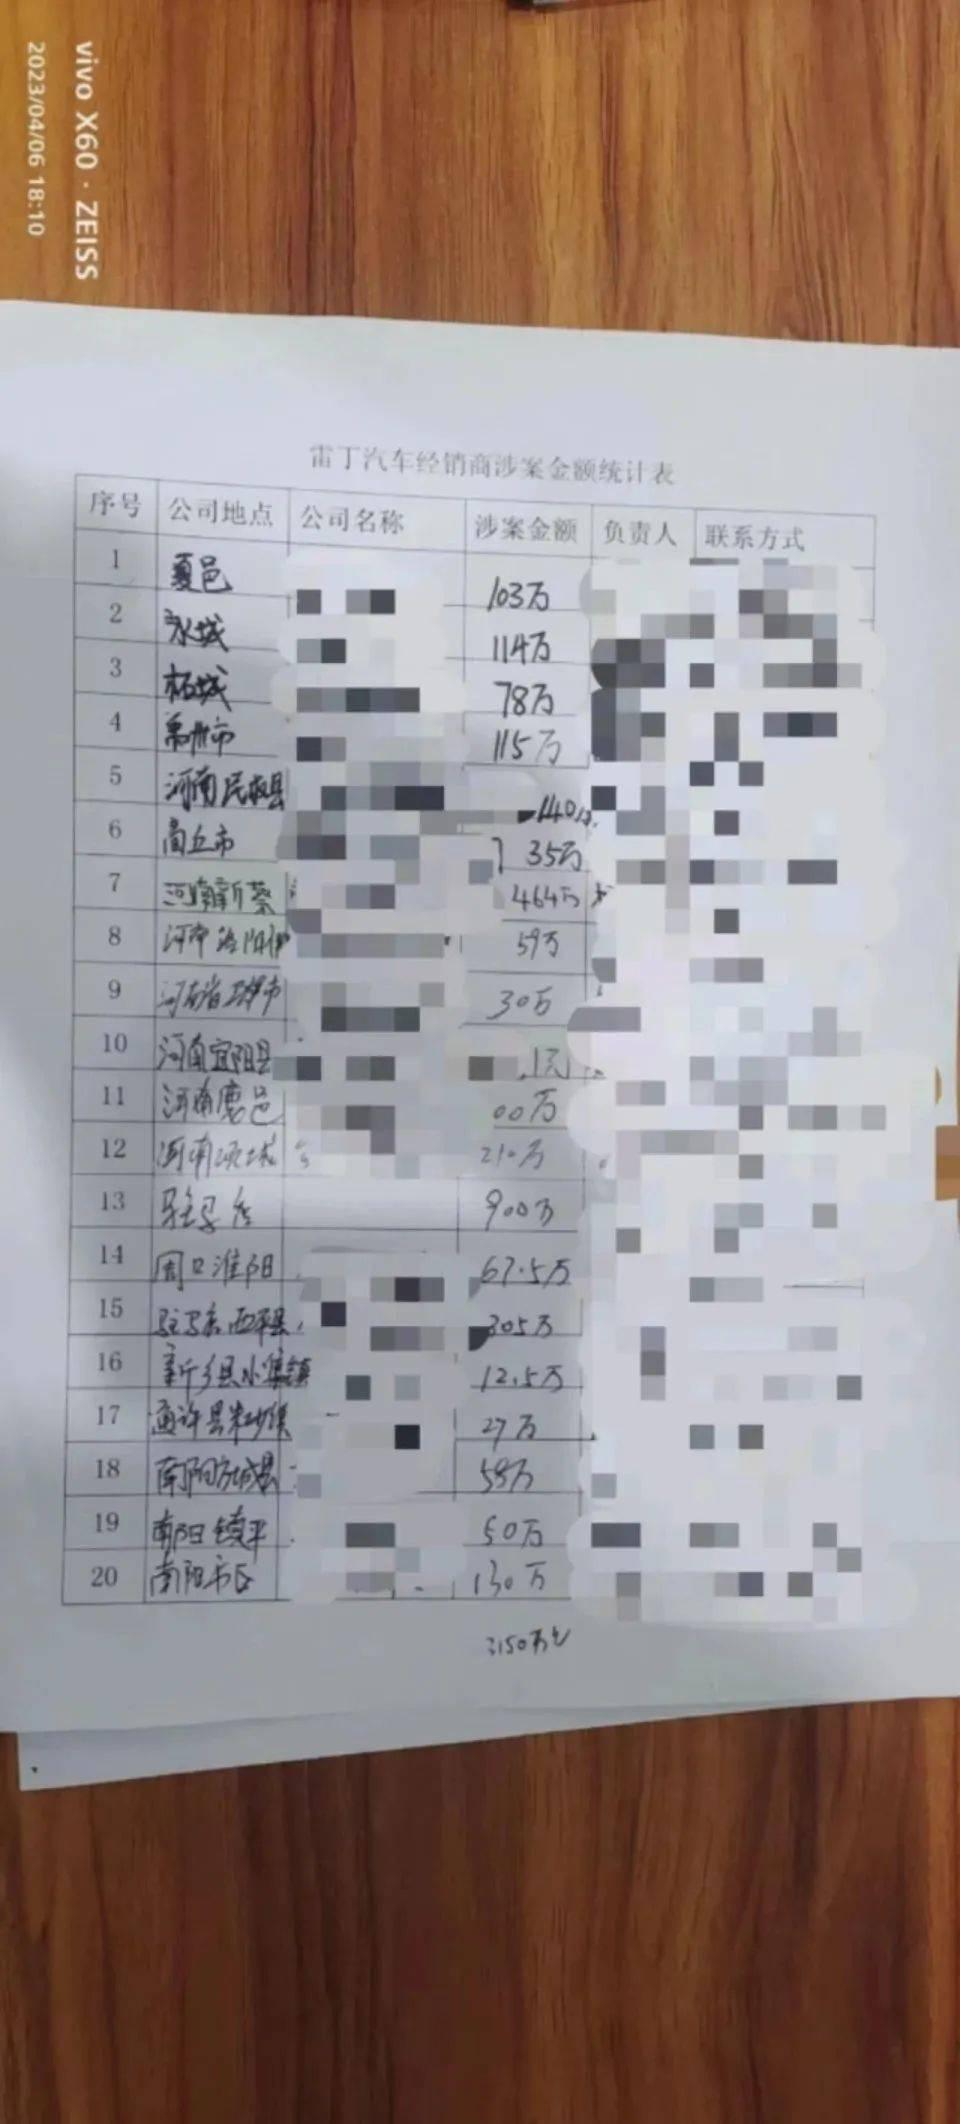 vivo X60 · ZEISS
2023/04/06 18:10
雷丁汽车经销商涉案金额统计表
序号 公司地点 公司名称 涉案金额 负责人 联系方式
1 夏邑 103万
2 永城 114万
3 柘城 78万
4 禹州市 115万
5 河南民权县 140
6 商丘市 35万
7 河南新蔡 464万
8 河南洛阳 59万
9 河南省 市 30万
10 河南宜阳县
11 河南鹿邑 00万
12 河南项城 210万
13 驻马店 900万
14 周口淮阳 67.5万
15 驻马店西平县 305万
16 新乡县小冀镇 12.5万
17 通许县 27万
18 南阳方城县 58万
19 南阳镇平 50万
20 南阳市区 130万
3150万